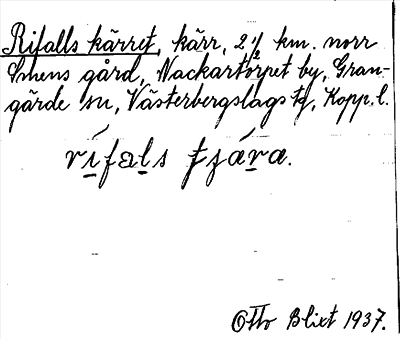 Rifalls kärret, kärr, 2 1/2 km. norr
Smens gård, Nackartorpet by, Gran-
gärde sn, Västerbergslags tg, Kopp. l.
rífals tjára.
Otto Blixt 1937.